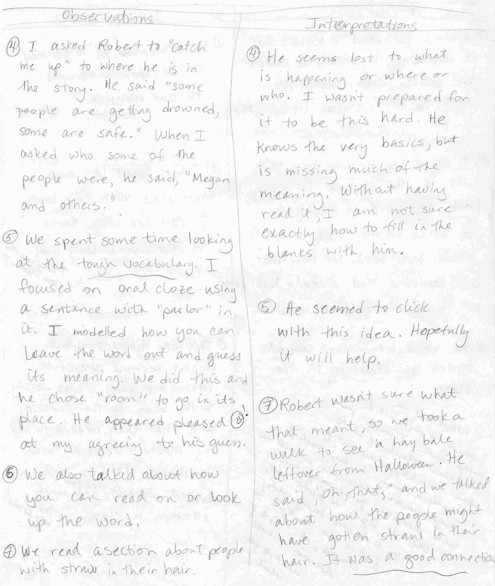 Observations
④ I asked Robert to "catch
me up" to where he is in
the story. He said "some
people are getting drowned,
some are safe." When I
asked who some of the
people were, he said, "Megan
and others."
⑤ We spent some time looking
at the tough vocabulary. I
focused on oral cloze using
a sentence with "parlor" in
it. I modelled how you can
leave the word out and guess
its meaning. We did this and
he chose "room" to go in its
place. He appeared pleased
at my agreeing to his guess.
⑥ We also talked about how
you can read on or look
up the word.
⑦ We read a section about people
with straw in their hair.
Interpretations
④ He seems lost to what
is happening or where or
who. I wasn't prepared for
it to be this hard. He
knows the very basics, but
is missing much of the
meaning. Without having
read it, I am not sure
exactly how to fill in the
blanks with him.
⑤ He seemed to click
with this idea. Hopefully
it will help.
⑦ Robert wasn't sure what
that meant, so we took a
walk to see a hay bale
leftover from Halloween. He
said, "Oh that," and we talked
about how the people might
have gotten straw in their
hair. It was a good connection